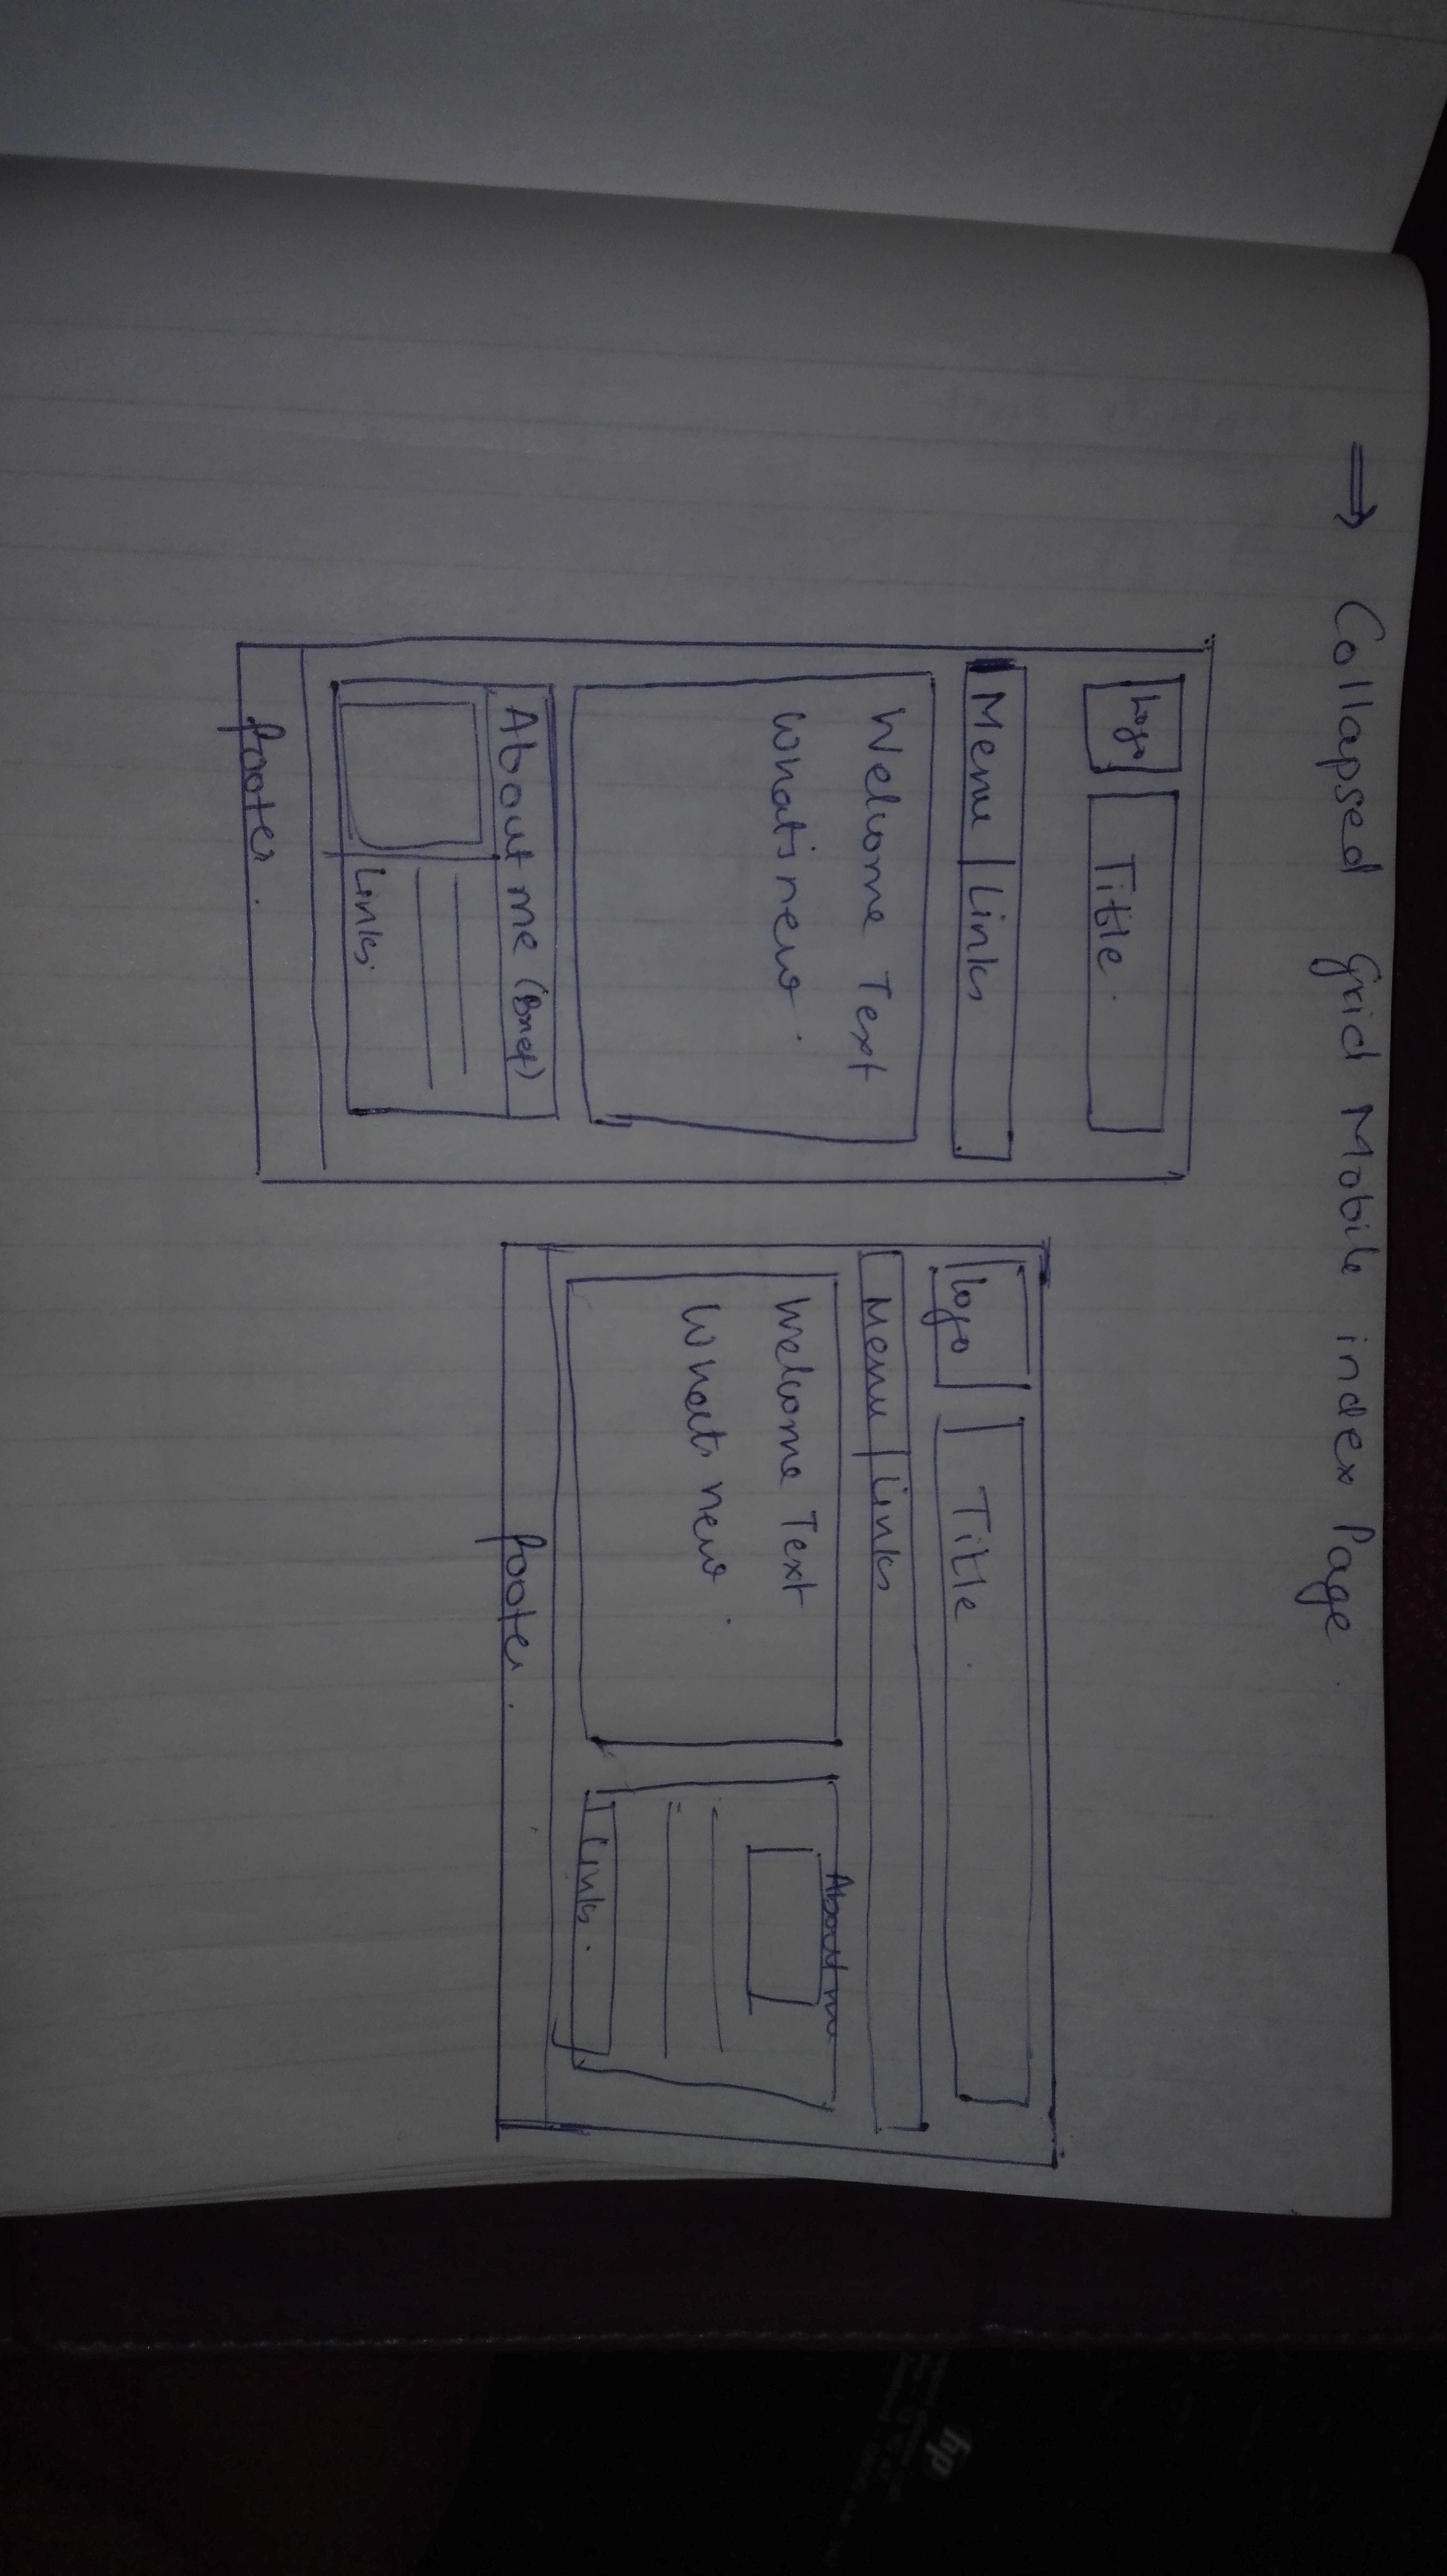 → Collapsed grid Mobile index Page.
Logo
Title.
Menu | Links
Welcome Text
Whats new.
About me (Brief)
Links.
footer.
Logo
Title.
Menu | Links
Welcome Text
Whats new.
About me
Links.
footer.
hp